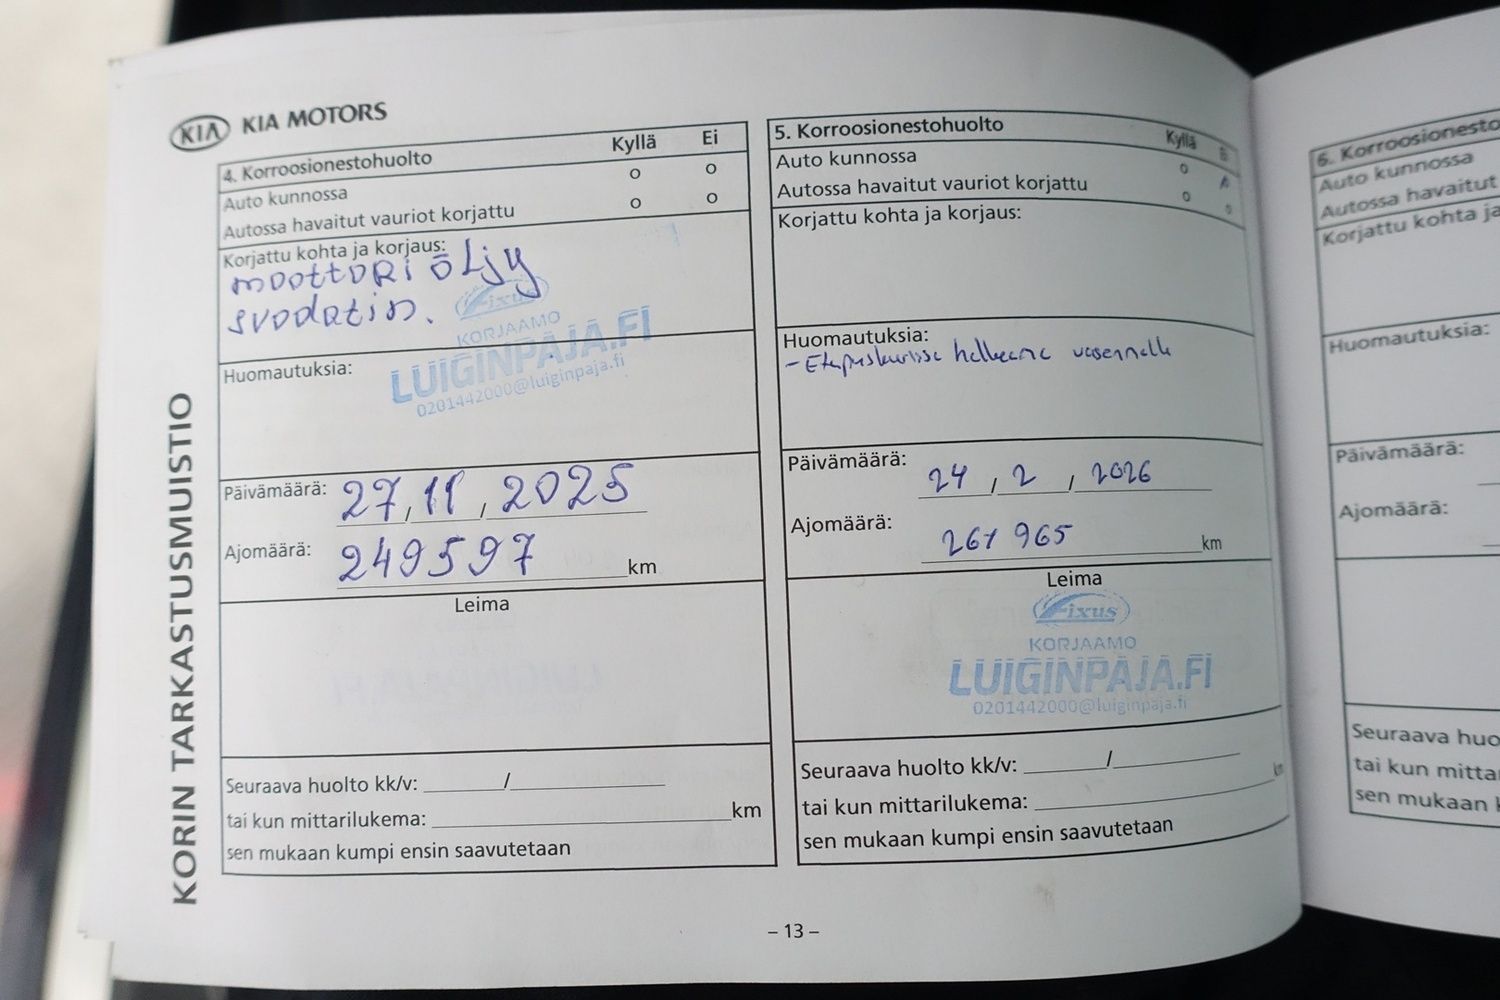 KIA KIA MOTORS
KORIN TARKASTUSMUISTIO
4. Korroosionestohuolto Kyllä Ei
Auto kunnossa o o
Autossa havaitut vauriot korjattu o o
Korjattu kohta ja korjaus:
moottori öljy
svodatin.
Fixus
KORJAAMO
LUIGINPAJA.FI
0201442000@luiginpaja.fi
Huomautuksia:
Päivämäärä: 27, 11, 2025
Ajomäärä: 249597 km
Leima
Seuraava huolto kk/v: /
tai kun mittarilukema: km
sen mukaan kumpi ensin saavutetaan
5. Korroosionestohuolto Kyllä
Auto kunnossa o
Autossa havaitut vauriot korjattu o o
Korjattu kohta ja korjaus:
Huomautuksia:
- Etupuskurissa halkeama vasemmalla
Päivämäärä: 24, 2, 2026
Ajomäärä: 261 965 km
Leima
Fixus
KORJAAMO
LUIGINPAJA.FI
0201442000@luiginpaja.fi
Seuraava huolto kk/v: /
tai kun mittarilukema: km
sen mukaan kumpi ensin saavutetaan
– 13 –
6. Korroosionesto
Auto kunnossa
Autossa havaitut
Korjattu kohta ja
Huomautuksia:
Päivämäärä:
Ajomäärä:
Seuraava huo
tai kun mitta
sen mukaan